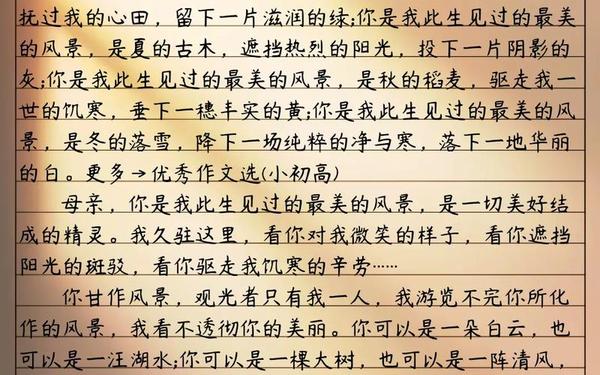 抚过我的心田，留下一片滋润的绿;你是我此生见过的最美
的风景，是夏的古木，遮挡热烈的阳光，投下一片阴影的
灰;你是我此生见过的最美的风景，是秋的稻麦，驱走我一
世的饥寒，垂下一穗丰实的黄;你是我此生见过的最美的风
景，是冬的落雪，降下一场纯粹的净与寒，落下一地华丽
的白。更多→优秀作文选(小初高)
母亲，你是我此生见过的最美的风景，是一切美好结
成的精灵。我久驻这里，看你对我微笑的样子，看你遮挡
阳光的斑驳，看你驱走我饥寒的辛劳……
你甘作风景，观光者只有我一人，我游览不完你所化
作的风景，我看不透彻你的美丽。你可以是一朵白云，也
可以是一汪湖水;你可以是一棵大树，也可以是一阵清风，